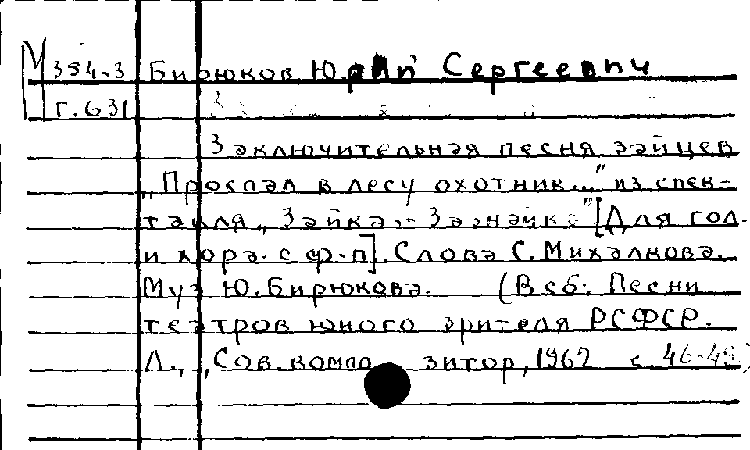 М 354-3 Бирюков Юрий Сергеевич
г.631
Заключительная песня зайцев
„Проспал в лесу охотник..." из спек-
такля „Зайка-Зазнайка" [Для гол.
и хора. с ф-п]. Слова С. Михалкова.
Муз Ю. Бирюкова. (В сб: Песни
театров юного зрителя РСФСР.
Л., „Сов. компо зитор, 1962 с 46-49)